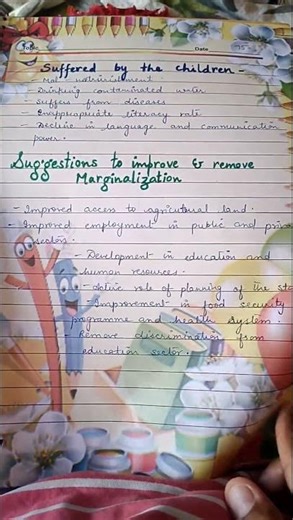 Date
Suffered by the children -
- Mal nutrishment
- Drinking contaminated water
- Suffers from diseases
- Inappropriate literacy rate
- Decline in language and communication
power.
Suggestions to improve & remove
Marginalization
- Improved access to agricultural land.
- Improved employment in public and
sectors.
- Development in education and
human resources.
- Active role of planning of the
- Improvement in food security
programme and health system.
- Remove discrimination from
education sector.